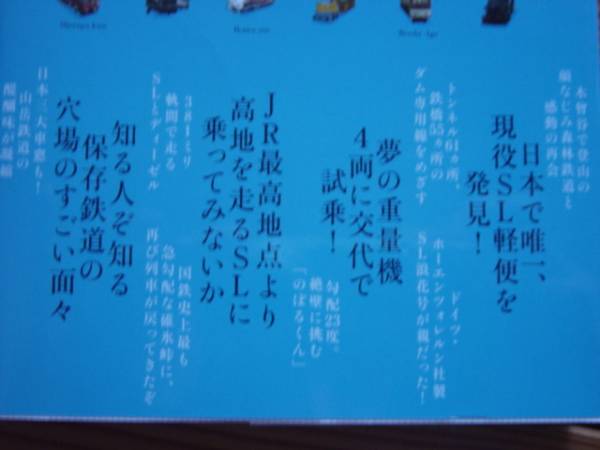 木曽谷で登山の
顔なじみ森林鉄道と
感動の再会
日本で唯一、
現役SL軽便を
発見！
ドイツ・
ホーエンツォレルン社製
SL浪花号が親だった！
トンネル61ヵ所、
鉄橋55ヵ所の
ダム専用線をめざす
夢の重量機
4両に交代で
試乗！
勾配23度。
絶壁に挑む
「のぼるくん」
JR最高地点より
高地を走るSLに
乗ってみないか
381ミリ
軌間で走る
SLとディーゼル
国鉄史上最も
急勾配な碓氷峠に、
再び列車が戻ってきたぞ
知る人ぞ知る
保存鉄道の
穴場のすごい面々
日本三大車窓も！
山岳鉄道の
醍醐味が凝縮